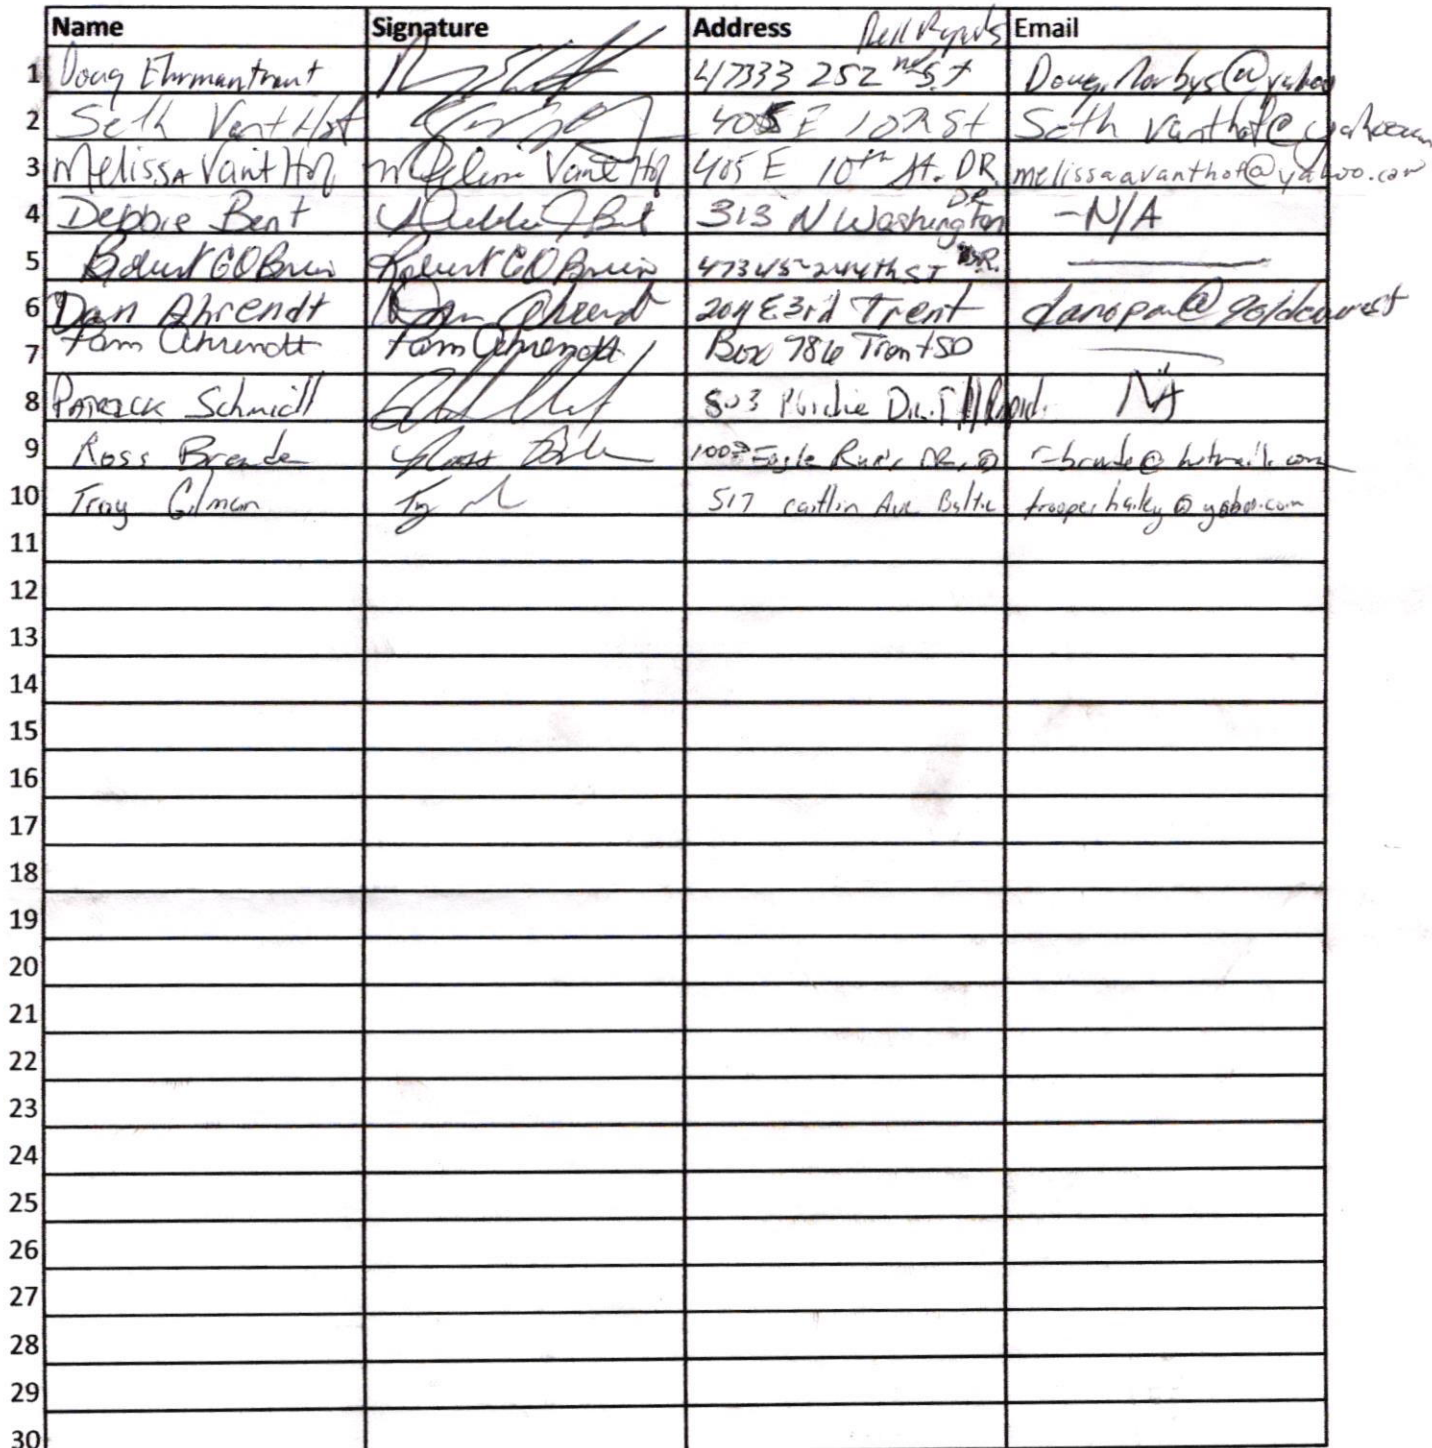 Name Signature Address Dell Rapids Email
1 Doug Ehrmantraut 47333 252 nd St Doug.Norbys@yahoo
2 Seth Vant Hof 405 E 10th St Seth Vanthof@yahoo.com
3 Melissa Vant Hof Melissa Vant Hof 405 E 10th St. DR. melissaavanthof@yahoo.com
4 Debbie Bent 313 N Washington DR -N/A
5 Robert G O'Brien Robert G O'Brien 47345-244th ST D.R.
6 Dan Ahrendt Dan Ahrendt 204 E 3rd Trent danopam@goldenwest
7 Pam Ahrendt Pam Ahrendt Box 786 Trent SD
8 PATRICK Schmidt 803 Dr. Dell Rapids NA
9 Ross Brende Ross 1003 Eagle Run Dr. r-brende@hotmail.com
10 Troy Gilman 517 caitlin Ave Baltic trooperhailey@yahoo.com
11
12
13
14
15
16
17
18
19
20
21
22
23
24
25
26
27
28
29
30